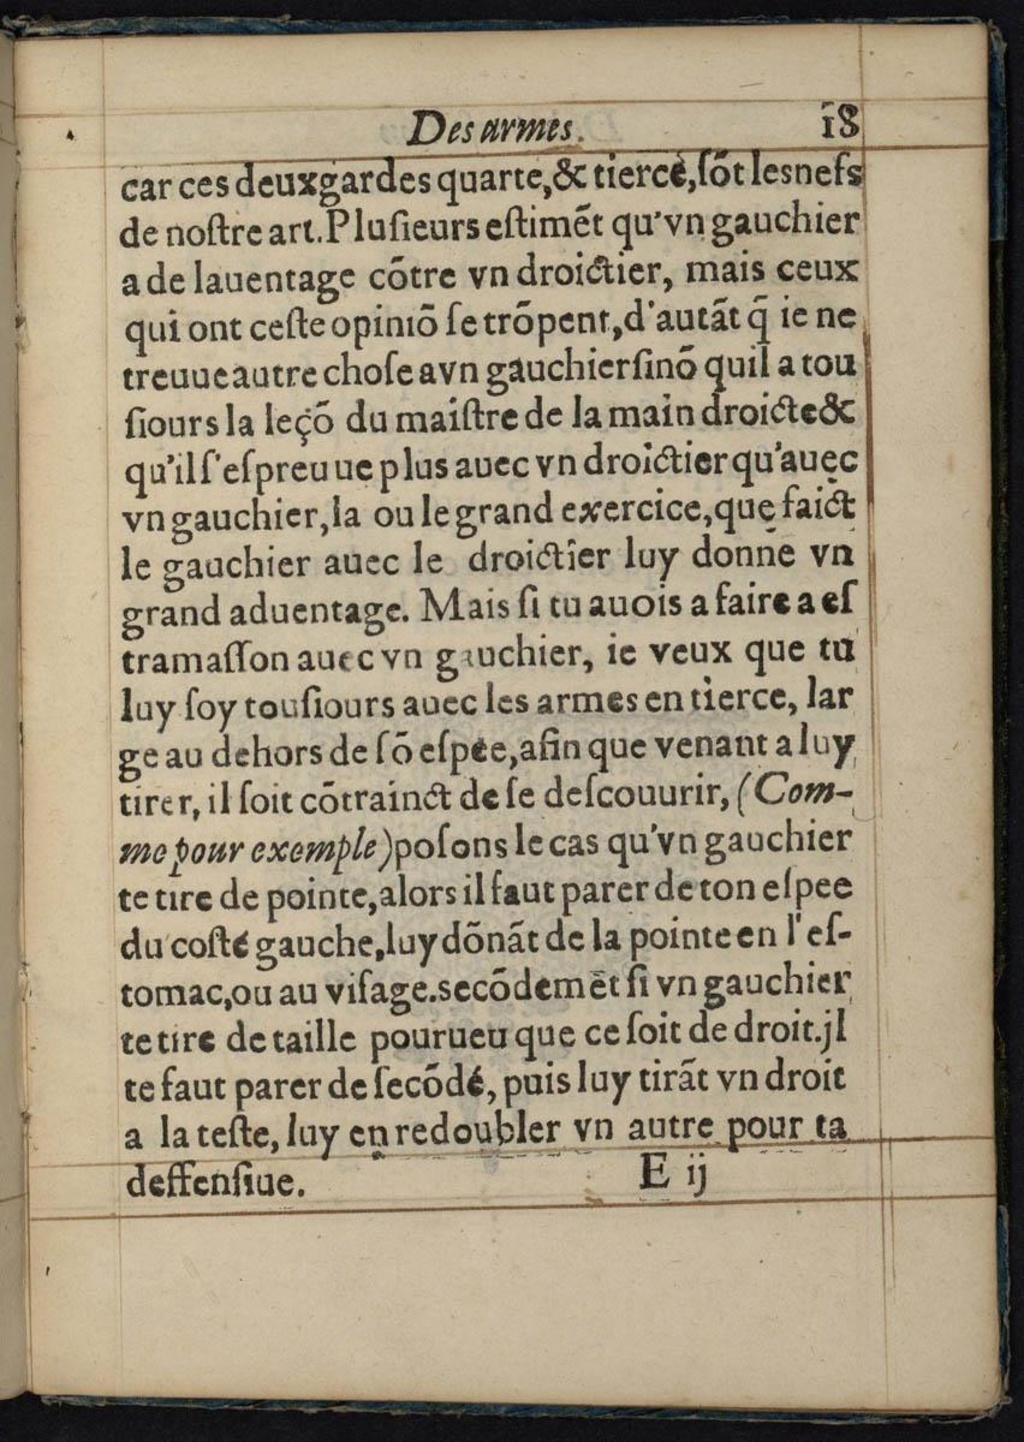 Des armes. 18
car ces deux gardes quarte, & tierce, sõt les nefs
de nostre art. Plusieurs estimẽt qu'vn gauchier
a de lauentage cõtre vn droictier, mais ceux
qui ont ceste opiniõ se trõpent, d'autãt q̃ ie ne
treuue autre chose a vn gauchier sinõ quil a tou
siours la leçõ du maistre de la main droicte &
qu'il s'espreuue plus auec vn droictier qu'auec
vn gauchier, la ou le grand exercice, que faict
le gauchier auec le droictier luy donne vn
grand aduentage. Mais si tu auois a faire a es
tramasson auec vn gauchier, ie veux que tu
luy soy tousiours auec les armes en tierce, lar
ge au dehors de sõ espée, afin que venant a luy
tirer, il soit cõtrainct de se descouurir, (Com-
me pour exemple) posons le cas qu'vn gauchier
te tire de pointe, alors il faut parer de ton espee
du costé gauche, luy dõnãt de la pointe en l'es-
tomac, ou au visage. secõdemẽt si vn gauchier
te tire de taille pourueu que ce soit de droit. jl
te faut parer de secõdé, puis luy tirãt vn droit
a la teste, luy en redoubler vn autre pour ta
deffensiue. E ij